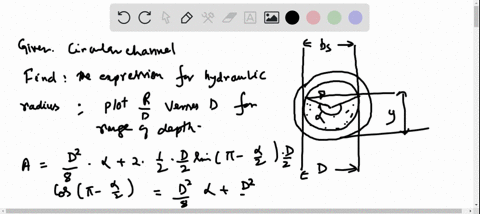 Given: Circular channel
Find: the expression for hydraulic
radius ; plot R/D versus D for
range of depth.
A = D²/8 · α + 2 · 1/2 · D/2 sin(π − α/2) · D/2
cos(π − α/2) = D²/8 α + D²
bs
R
α
y
D